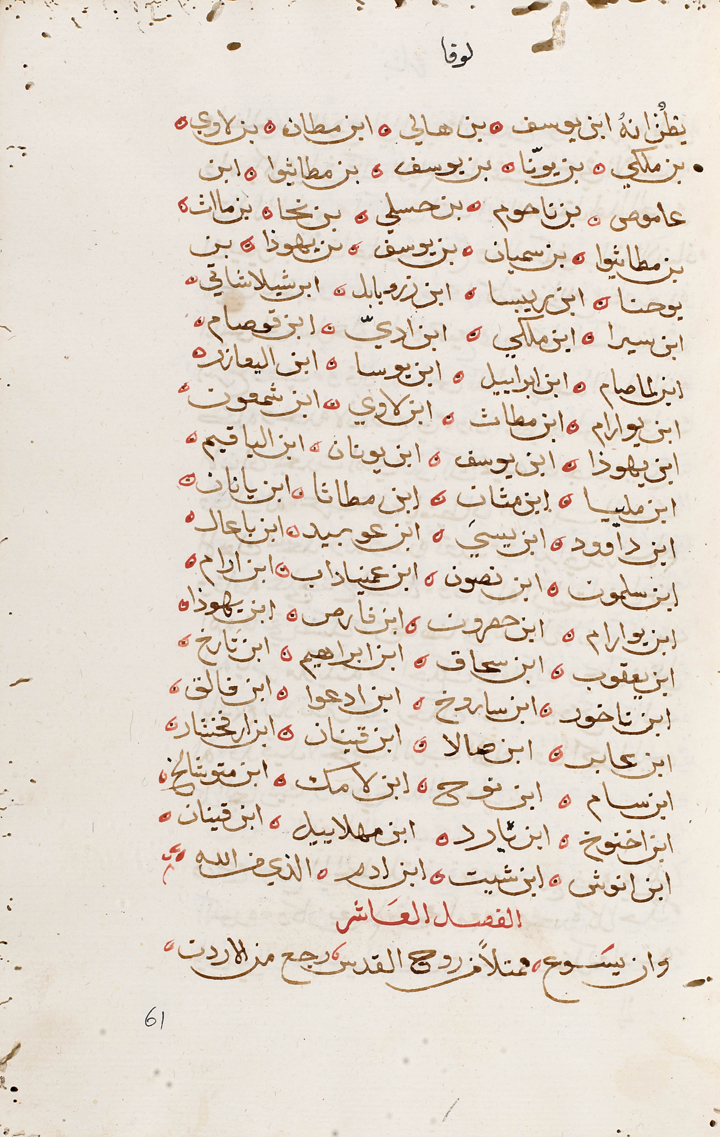 لوقا
يظن انه ابن يوسف ٥ بن هالي ٥ ابن مطان ٥ بن لاوي ٥
بن ملكي ٥ بن يونا ٥ بن يوسف ٥ بن مطاثيوا ٥ ابن
عاموص ٥ بن ناحوم ٥ بن حسلي ٥ بن نجا ٥ بن مااث ٥
بن مطاثيوا ٥ بن سميان ٥ بن يوسف ٥ بن يهوذا ٥ بن
يوحنا ٥ ابن ريسا ٥ ابن زروبابل ٥ ابن شيلاشاتي
ابن سيرا ٥ ابن ملكي ٥ ابن اديّ ٥ ابن قوصام
ابن لماصام ٥ ابن ابراييل ٥ ابن يوسا ٥ ابن اليعازر ٥
ابن يوارام ٥ ابن مطاث ٥ ابن لاوي ٥ ابن شمعون
ابن يهوذا ٥ ابن يوسف ٥ ابن يونان ٥ ابن الياقيم
ابن مليا ٥ ابن مثان ٥ ابن مطاثا ٥ ابن ياثان ٥
ابن داوود ٥ ابن يسي ٥ ابن عوبيد ٥ ابن باعاز
ابن سلمون ٥ ابن نصون ٥ ابن عميناداب ٥ ابن ارام
ابن يوارام ٥ ابن حصرون ٥ ابن فارص ٥ ابن يهوذا
ابن يعقوب ٥ ابن سحاق ٥ ابن ابراهيم ٥ ابن تارح
ابن ناخور ٥ ابن ساروخ ٥ ابن ادعوا ٥ ابن فالق
ابن عابر ٥ ابن صالا ٥ ابن قينان ٥ ابن ارفخشار
ابن سام ٥ ابن نوح ٥ ابن لامك ٥ ابن متوشالخ
ابن اخنوخ ٥ ابن يارد ٥ ابن مهلاييل ٥ ابن قينان
ابن انوش ٥ ابن شيت ٥ ابن ادم ٥ الذي من الله
الفصل العاشر
وان يسوع ممتلاً من روح القدس رجع من الاردن
61